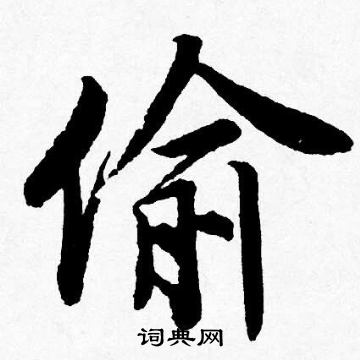 偷
词典网